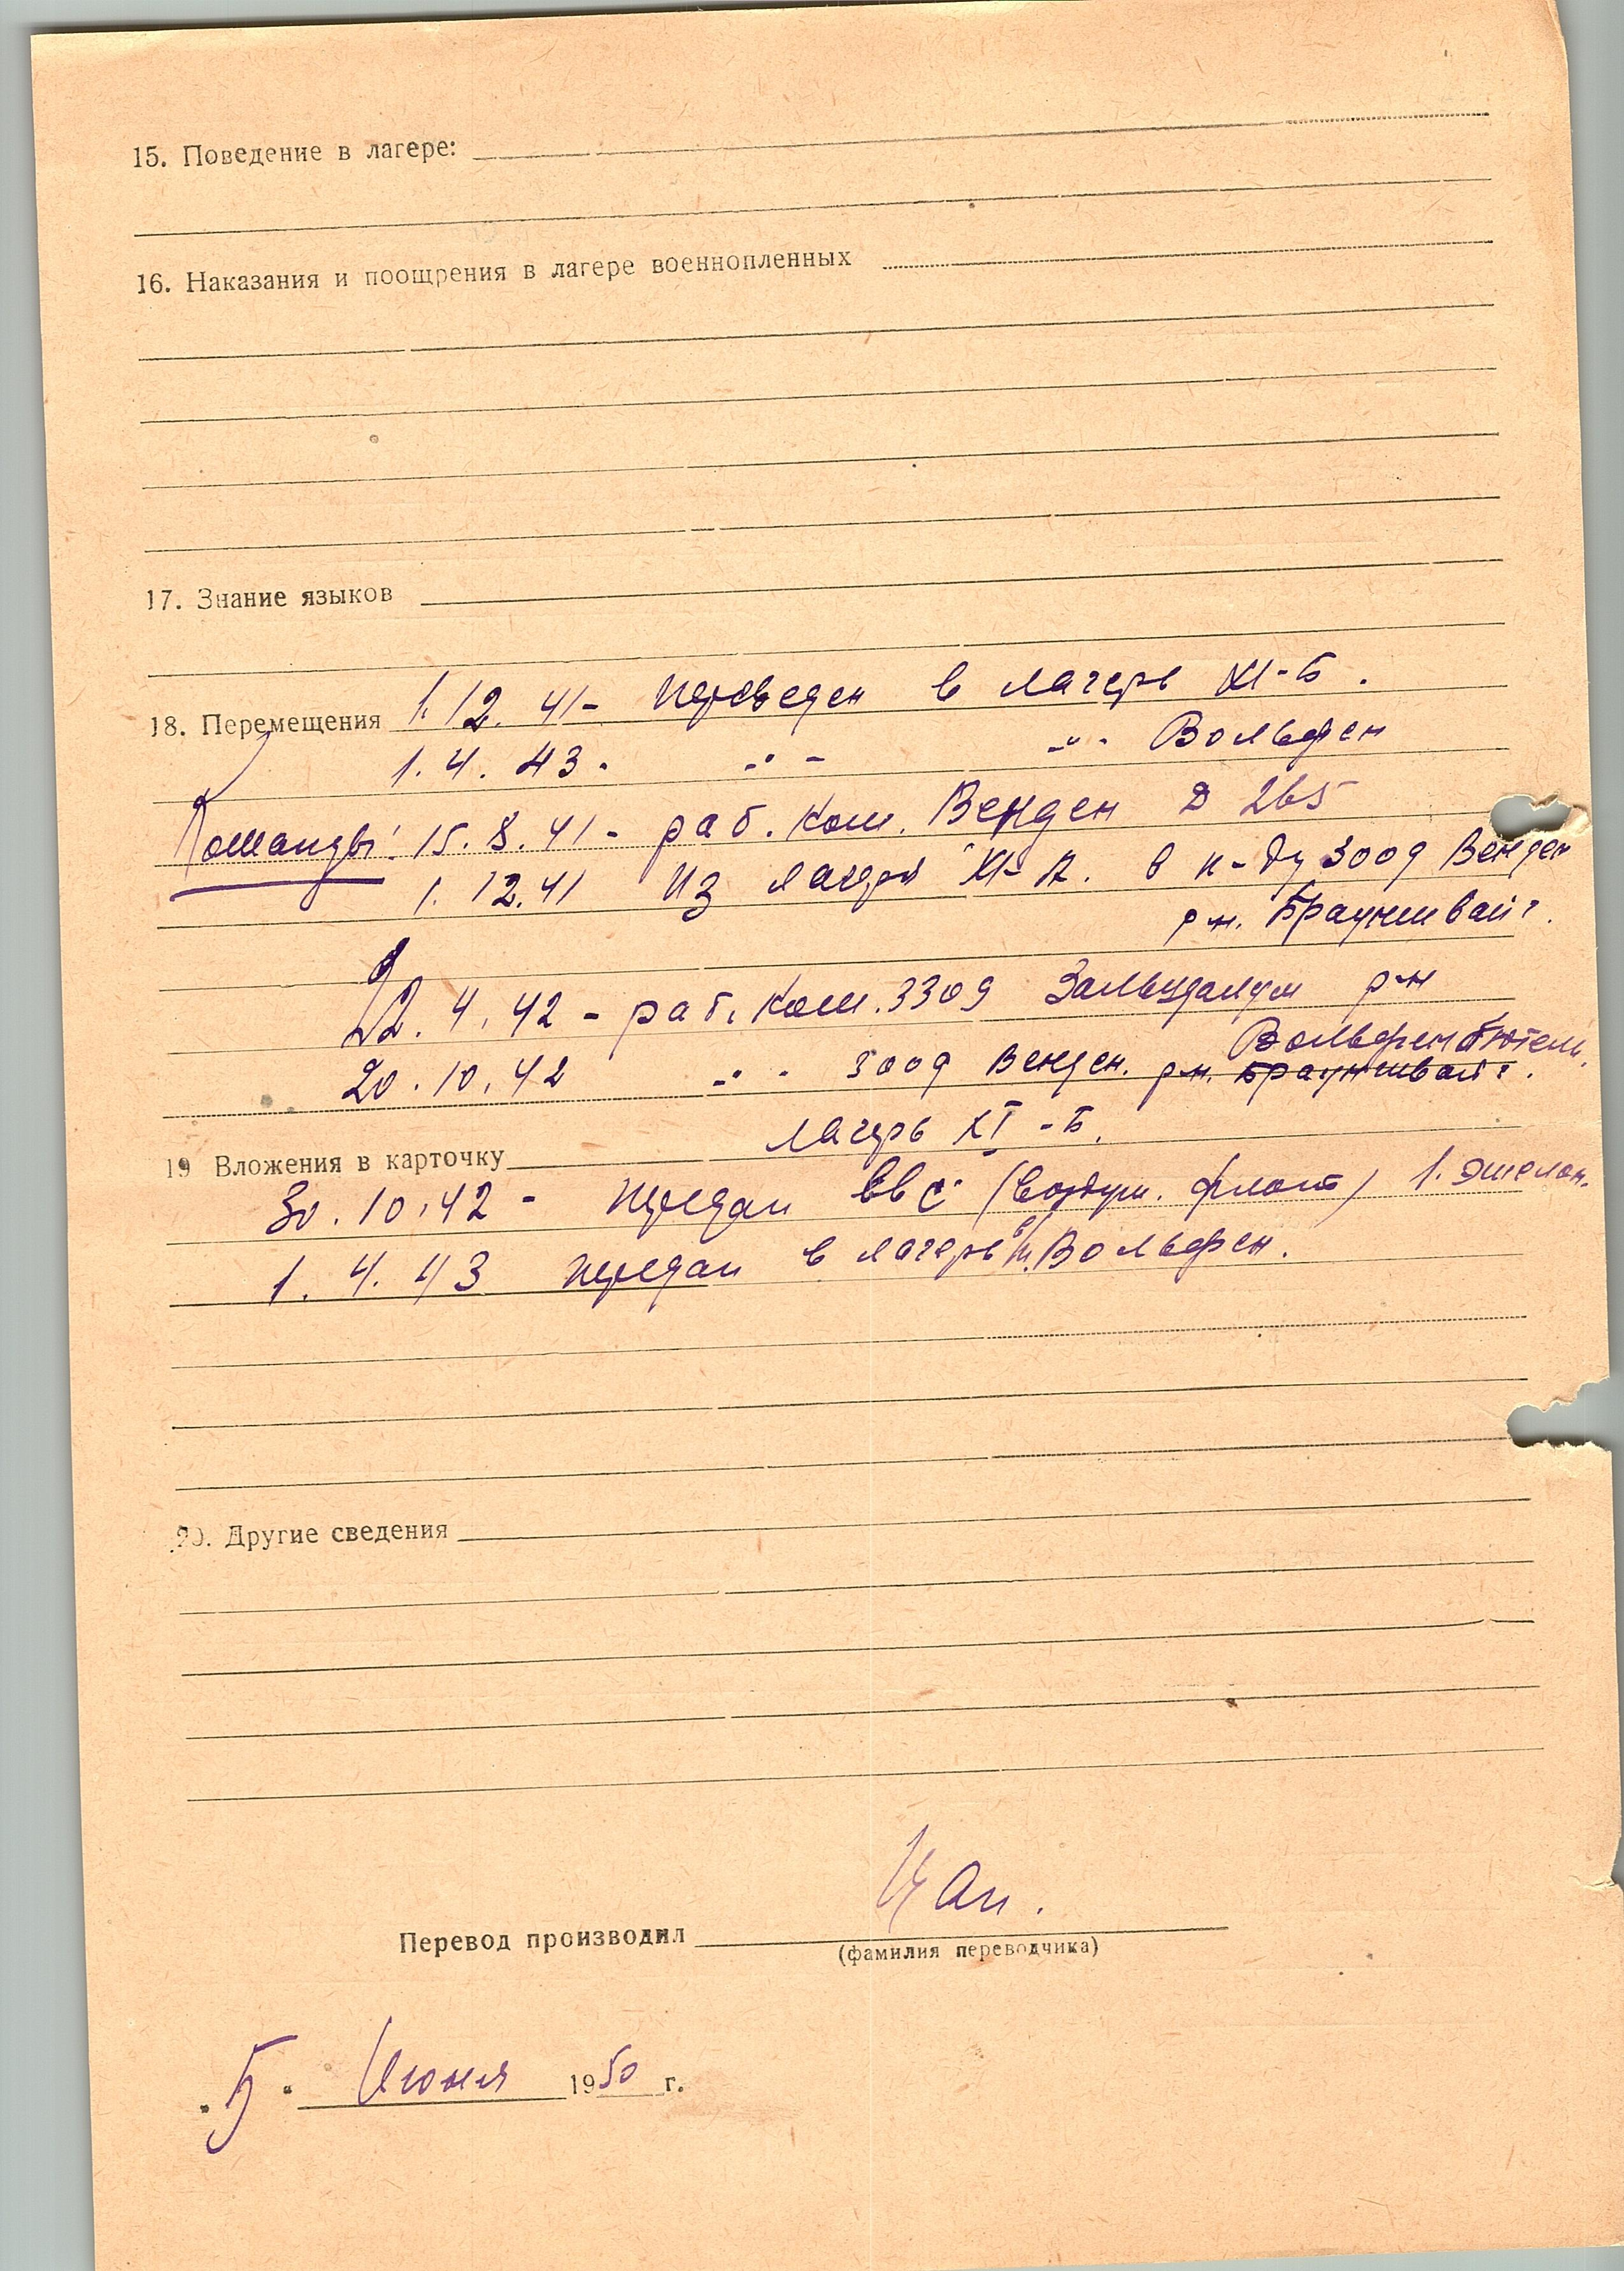 15. Поведение в лагере:
16. Наказания и поощрения в лагере военнопленных
17. Знание языков
18. Перемещения 1.12.41- Переведен в лагерь XI-Б.
1.4.43. -"- -"- Вольфен
Команды: 15.8.41- раб. Ком. Венден Д 265
1.12.41 Из лагеря XI-А. в к-ду 3009 Венден
р-н. Брауншвайг.
22.4.42 - раб. Ком. 3309 Зальцдалум р-н
Вольфенбютель.
20.10.42 -"- 3009 Венден. р-н. Брауншвайг.
лагерь XI-Б.
19 Вложения в карточку
30.10.42 - передан ВВС (воздуш. флот) 1. эшелон.
1.4.43 передан в лагерь Вольфен.
20. Другие сведения
Цап.
Перевод производил
(фамилия переводчика)
"5" Июня 1950 г.